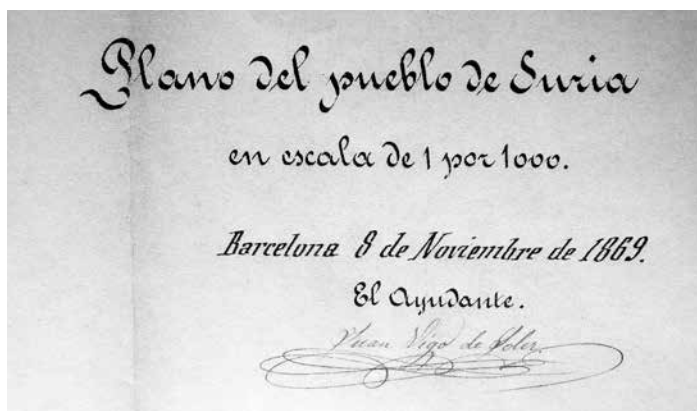 Plano del pueblo de Suria
en escala de 1 por 1000.
Barcelona 8 de Noviembre de 1869.
El Ayudante.
Juan Vigo de Soler